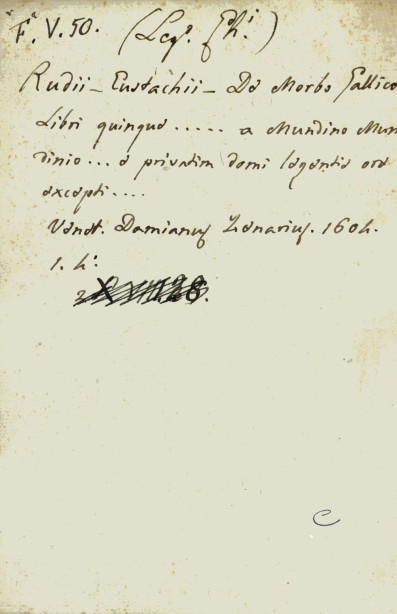 Fª. V. 50. (Leg.
Rudii - Eustachii - De Morbo Gallico
Libri quinque ..... a Mundino Mun
dinio ... e privatim domi legentis ore
excepti ....
Venet. Damianus Zenarius. 1604.
1. h:
C